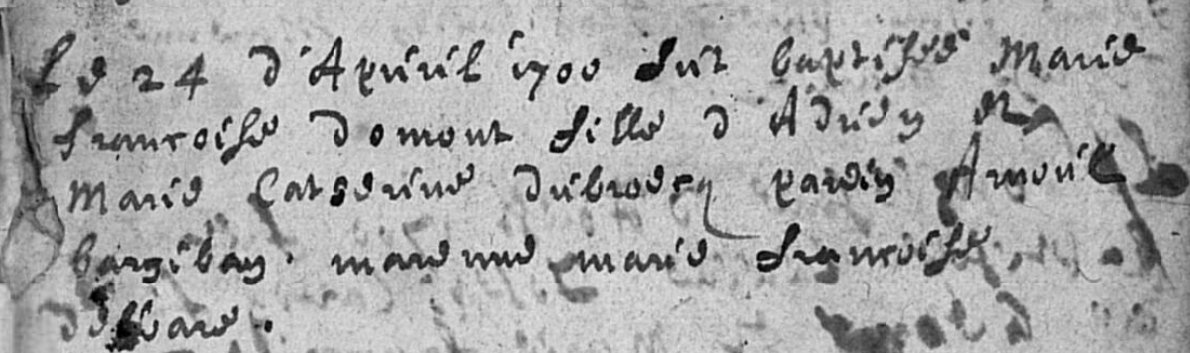 Le 24 d'Apuril 1700 fut baptisée Marie
francoise domont fille d'Adrien et
Marie Catherine dubroecq parein Arnoul
bargiban. marenne marie francoise